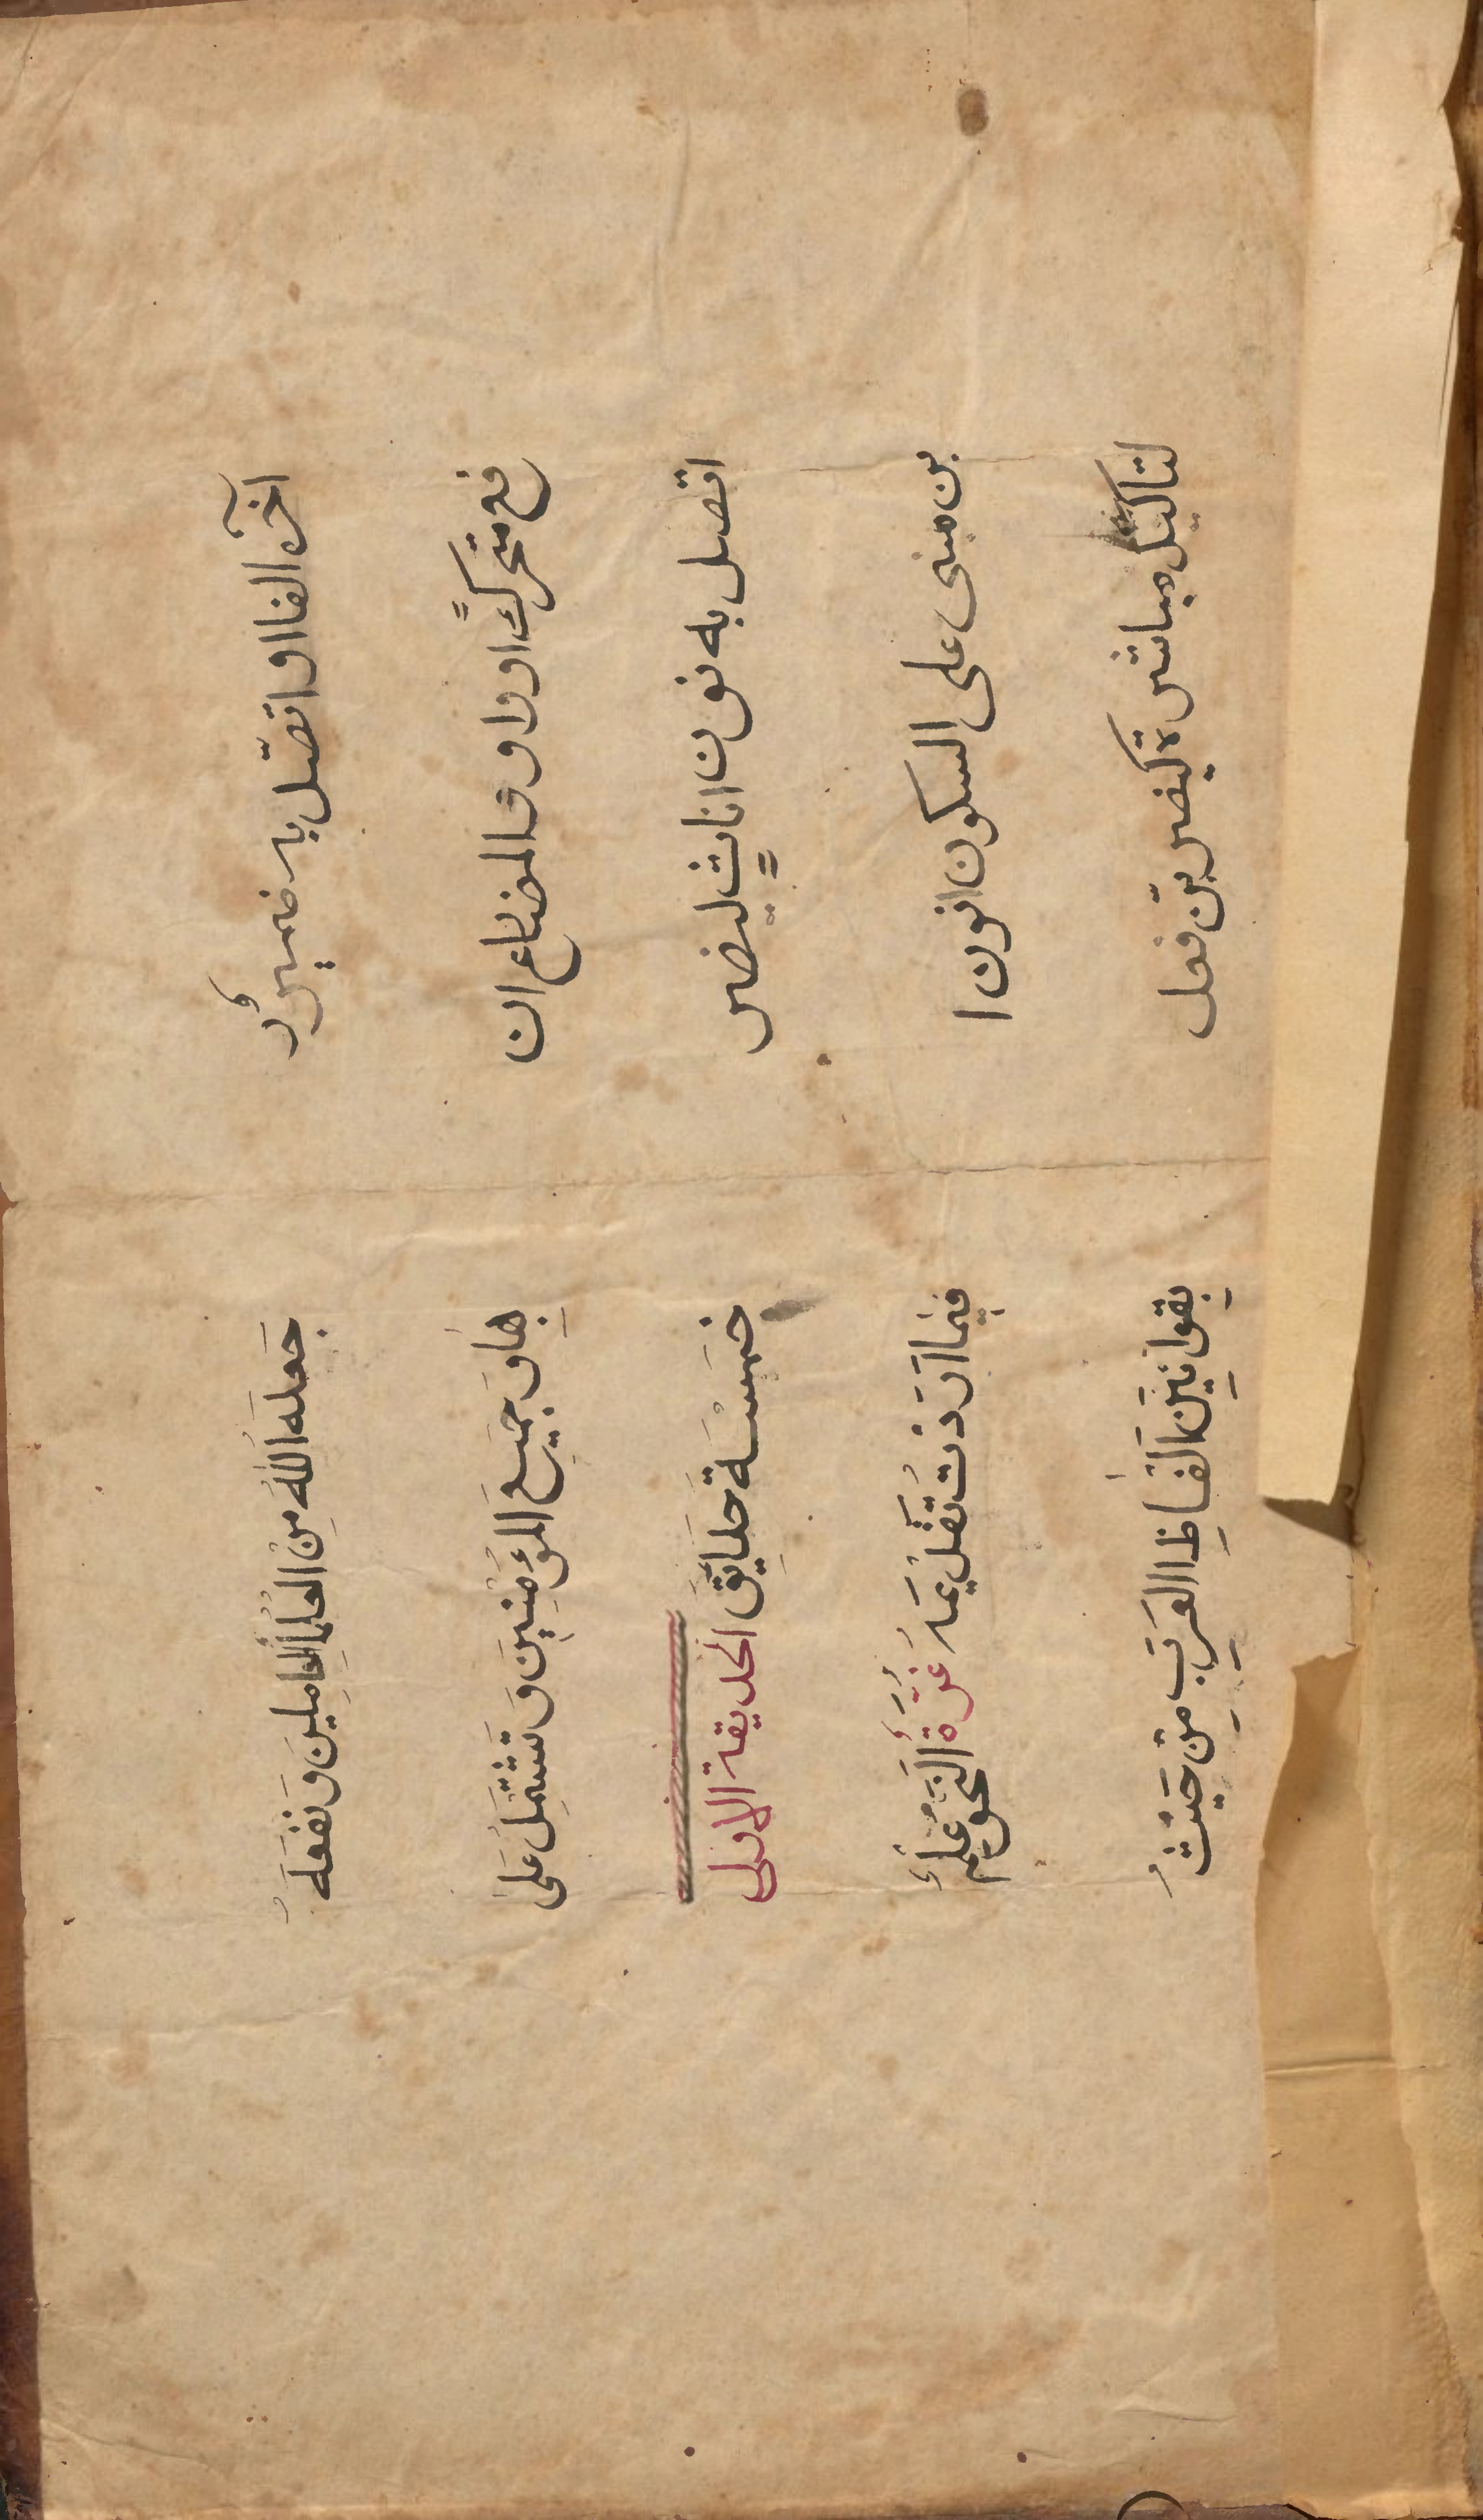 آخره الفا او اتصّل به ضمير رُ
فع متحركً او واو والمضارع ان
اتصل به نون اناثٍ ليضر
بن مبنى على السكون انون ا
لتاكيد مباشرة كيضربّن فعل
جَعلَه اللهُ مِنْ العُلَمٰاءِ العٰامِلينَ وَ نَفَعَهُ
بِهٰا وَ جَميِعَ المؤُمْنِينَ وَ تَشْتَمِلُ عَلىٰ
خَمَسْسَة حَدايَقَ الحديقة الاولى
فيِمٰا اَرَدْتُ تَقْديمَهُ غُرَّةٌ اَلنَّحْوُ عِلْمٌ
بِقَوانيِنَ اَلْفٰاظِ العَرَبِ مِنْ حَيْثُ